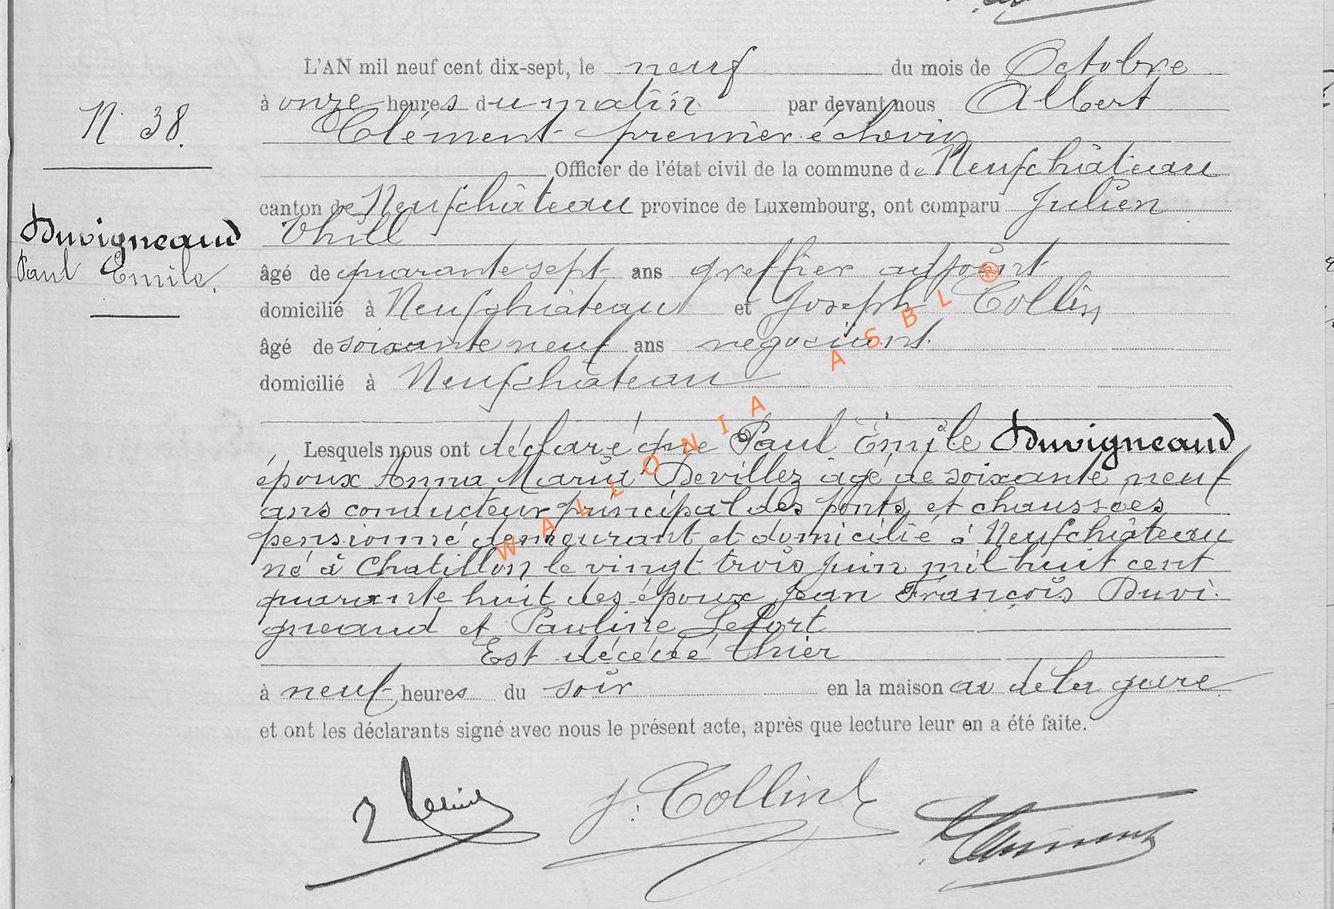 L'AN mil neuf cent dix-sept, le neuf du mois de Octobre
à onze heures du matin par devant nous Albert
N. 38.
Clément premier échevin
Officier de l'état civil de la commune de Neufchâteau
canton de Neufchâteau province de Luxembourg, ont comparu Julien
Duvigneaud
Paul Emile.
Thill
âgé de quarante sept ans greffier adjoint
domicilié à Neufchâteau et Joseph Collin
âgé de soixante neuf ans négociant
domicilié à Neufchâteau
Lesquels nous ont déclaré que Paul Emile Duvigneaud
époux Anna Maria Devillez agé de soixante neuf
ans conducteur principal des ponts et chaussées
pensionné demeurant et domicilié à Neufchâteau
né à Chatillon le vingt trois juin mil huit cent
quarante huit des époux Jean François Duvi-
gneaud et Pauline Lefort
Est décédé hier
à neuf heures du soir en la maison av de la gare
et ont les déclarants signé avec nous le présent acte, après que lecture leur en a été faite.
J. Collin
WALLONIA ASBL ®